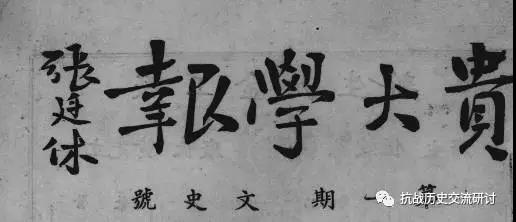 貴大學報
張廷休
第一期 文史號
抗战历史交流研讨